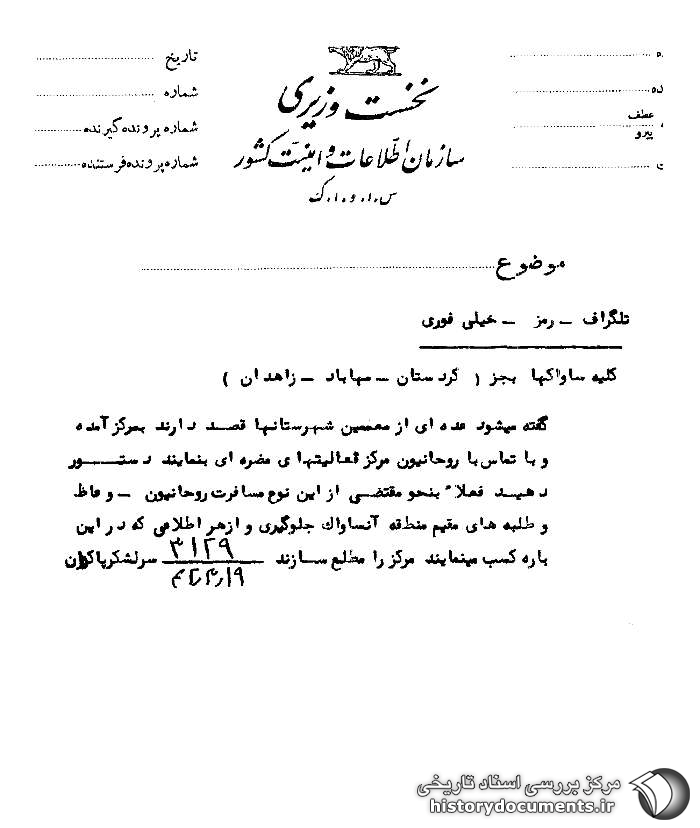 نخست وزیری
سازمان اطلاعات و امنیت کشور
س.ا.و.ا.ک
ه
ده
عطف
پیرو
تاریخ
شماره
شماره پرونده گیرنده
شماره پرونده فرستنده
موضوع
تلگراف – رمز – خیلی فوری
کلیه ساواکها بجز ( کردستان – مهاباد – زاهدان )
گفته میشود عده ای از معممین شهرستانها قصد دارند بمرکز آمده
و با تماس با روحانیون مرکز فعالیتهای مضره ای بنمایند دستور
دهید فعلاً بنحو مقتضی از این نوع مسافرت روحانیون – وعاظ
و طلبه های مقیم منطقه آنساواک جلوگیری و از هر اطلاعی که در این
باره کسب مینمایند مرکز را مطلع سازند ۳۱۲۹ سرلشکر پاکروان
مرکز بررسی اسناد تاریخی
historydocuments.ir